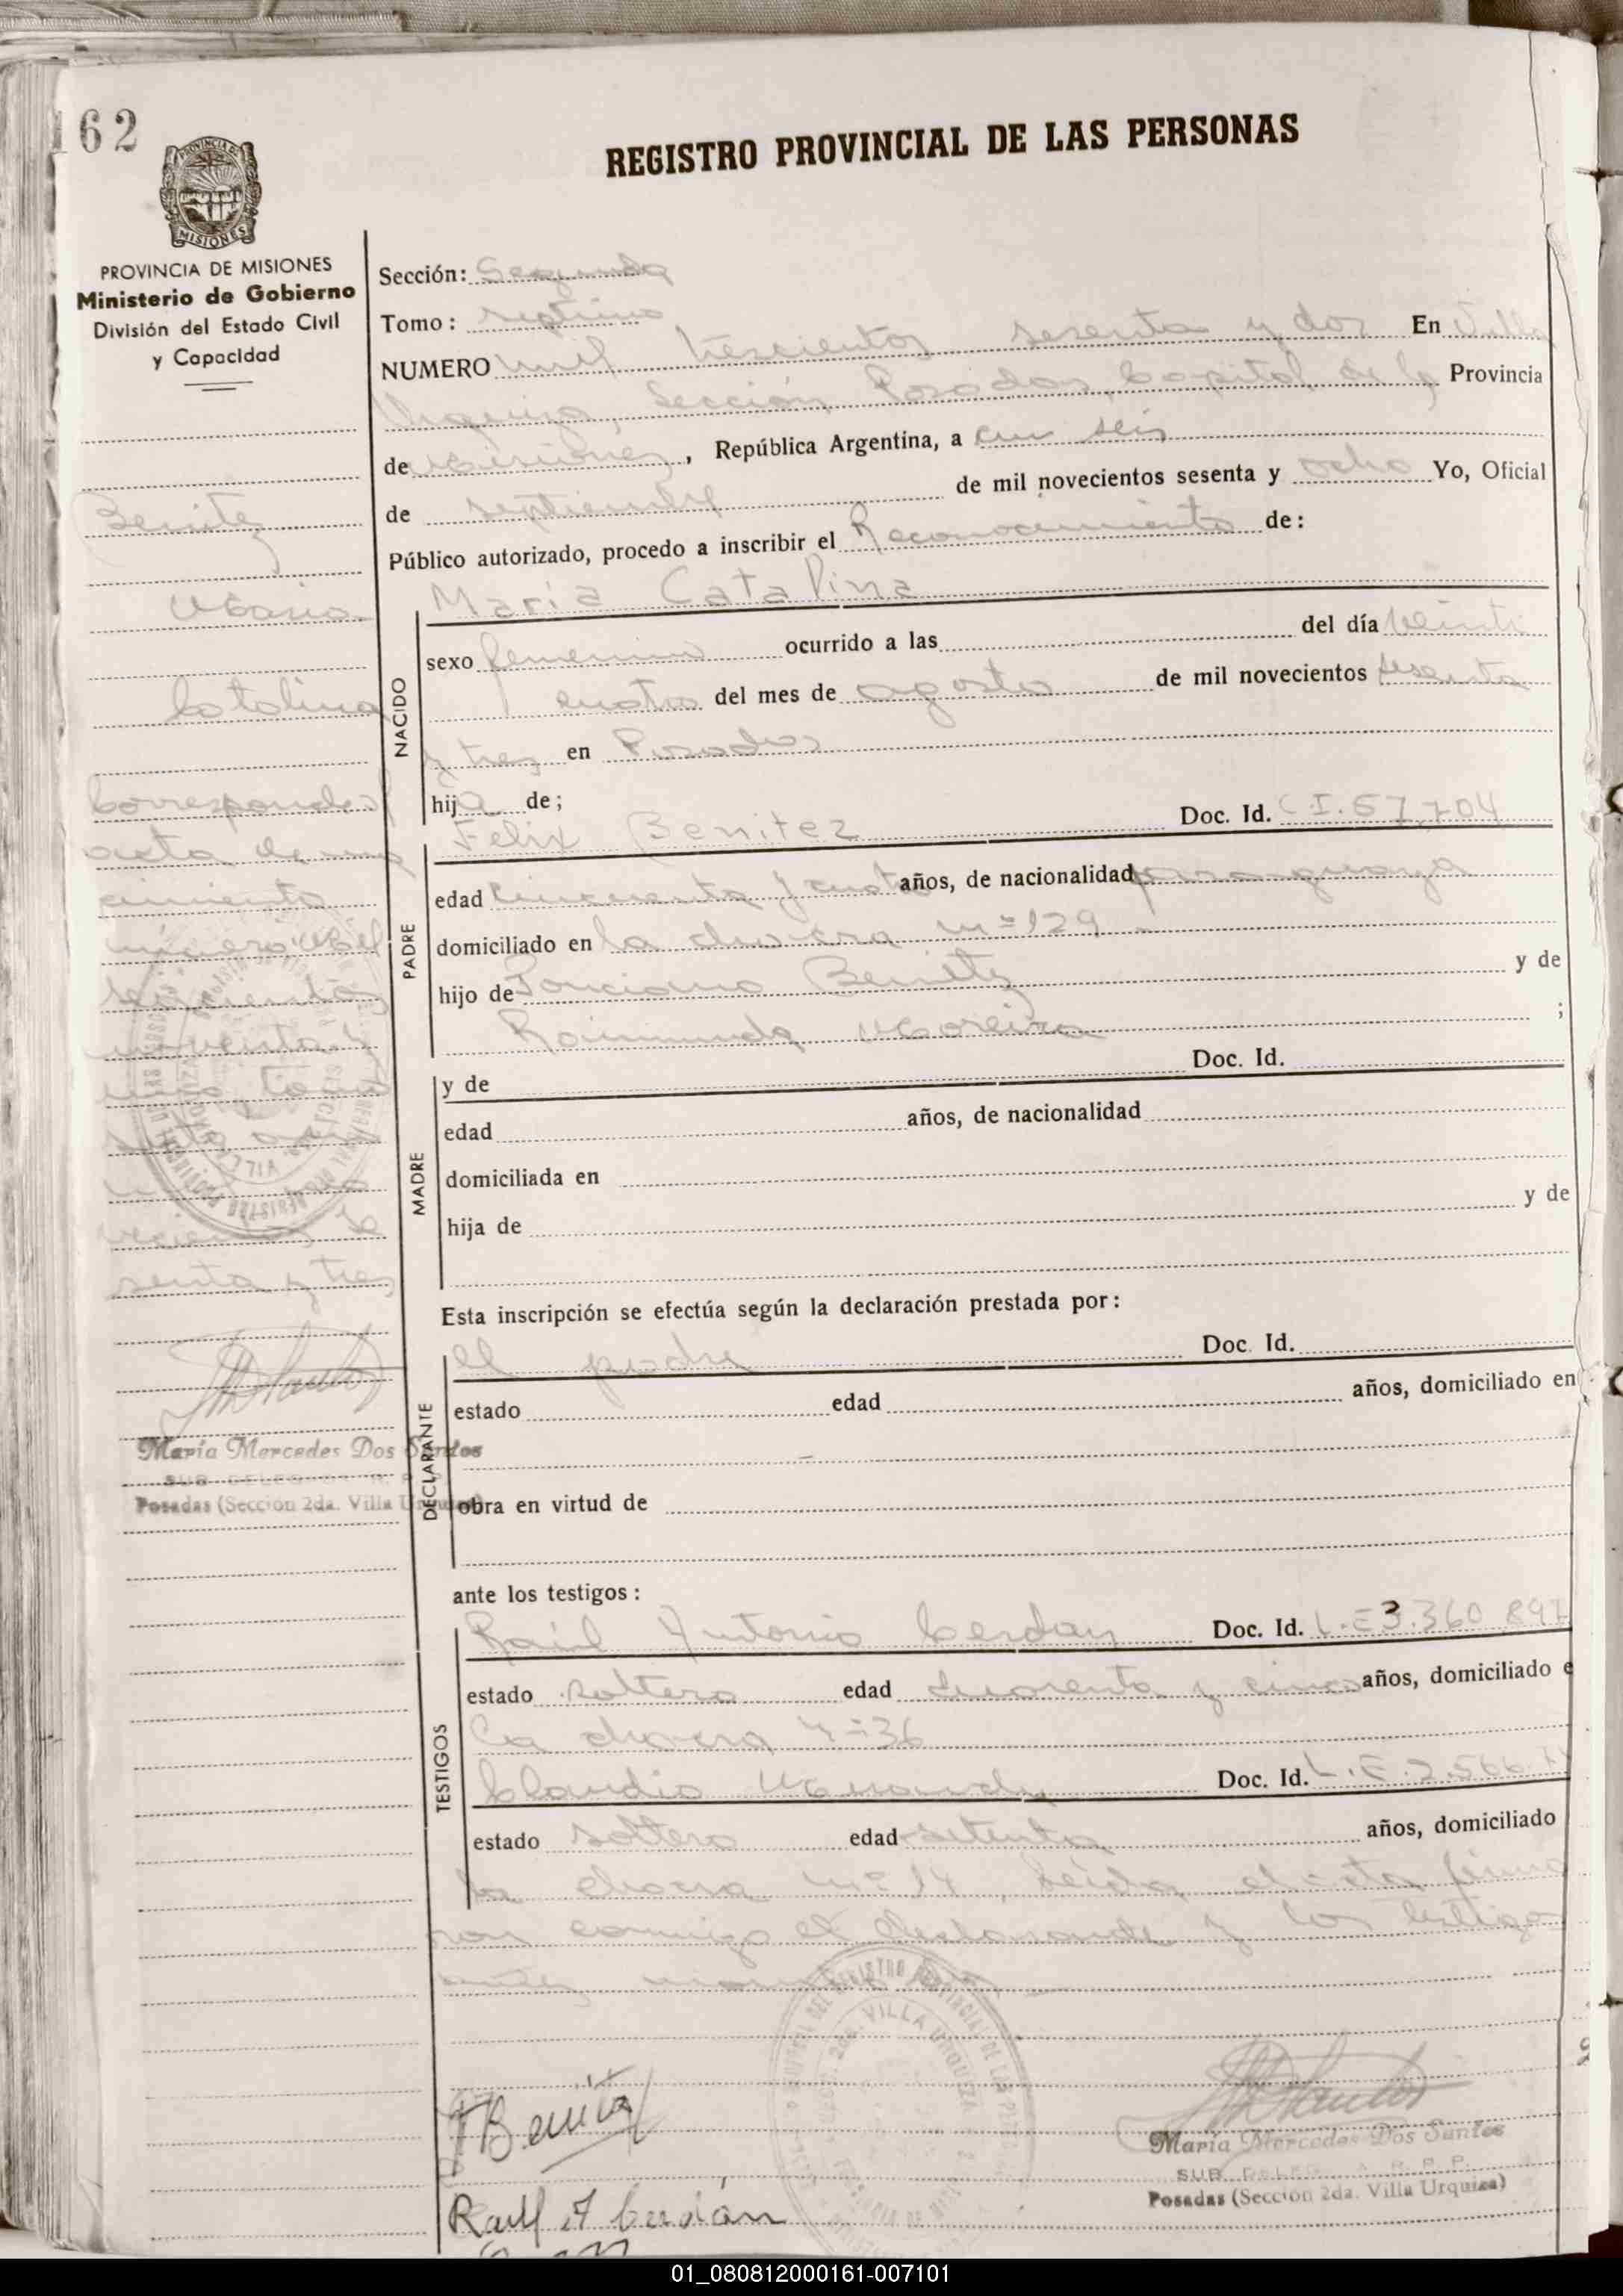 162
REGISTRO PROVINCIAL DE LAS PERSONAS
PROVINCIA DE MISIONES
Ministerio de Gobierno
División del Estado Civil
y Capacidad
Benitez
Maria
Catalina
Corresponde
acta de na
cimiento
número Mil
seiscientos
noventa y
uno tomo
senta y tres
María Mercedes Dos Santos
SUB DELEG
Posadas (Sección 2da. Villa Urquiza)
Sección: Segunda
Tomo: septimo
NUMERO mil trescientos sesenta y dos En Villa
Urquiza, Sección Posadas, Capital de la Provincia
de Misiones, República Argentina, a los seis
de septiembre de mil novecientos sesenta y ocho Yo, Oficial
Público autorizado, procedo a inscribir el Reconocimiento de:
NACIDO
María Catalina
sexo femenino ocurrido a las del día veinti
cuatro del mes de agosto de mil novecientos sesenta
y tres en Posadas
hija de;
PADRE
Felix Benitez Doc. Id. C.I. 57.704
edad cincuenta y cuatro años, de nacionalidad paraguaya
domiciliado en la chacra nº 129
hijo de Ponciano Benitez y de
Raimunda Moreira ;
MADRE
y de Doc. Id.
edad años, de nacionalidad
domiciliada en
hija de y de
Esta inscripción se efectúa según la declaración prestada por:
DECLARANTE
el padre Doc. Id.
estado edad años, domiciliado en
obra en virtud de
ante los testigos:
TESTIGOS
Raúl Antonio Cerdan Doc. Id. L.E 3.360.897
estado soltero edad cuarenta y cinco años, domiciliado e
la chacra nº 36
Claudio Doc. Id. L.E. 2.566
estado soltero edad setenta años, domiciliado
la chacra nº 14, leída el acta firma
ron conmigo el declarante y los testigos
F Benitez
Raúl A Cerdán
VILLA URQUIZA
María Mercedes Dos Santos
SUB DELEG R. P. P.
Posadas (Sección 2da. Villa Urquiza)
01_080812000161-007101